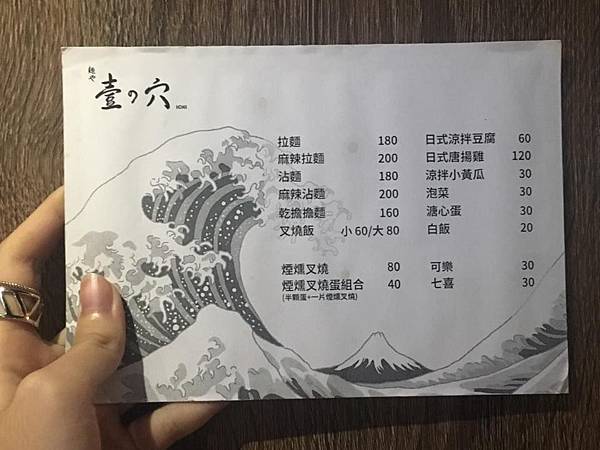 麺や
壹の穴 ICHI
拉麵 180
麻辣拉麵 200
沾麵 180
麻辣沾麵 200
乾擔擔麵 160
叉燒飯 小 60/大 80
煙燻叉燒 80
煙燻叉燒蛋組合 40
(半顆蛋+一片煙燻叉燒)
日式涼拌豆腐 60
日式唐揚雞 120
涼拌小黃瓜 30
泡菜 30
溏心蛋 30
白飯 20
可樂 30
七喜 30